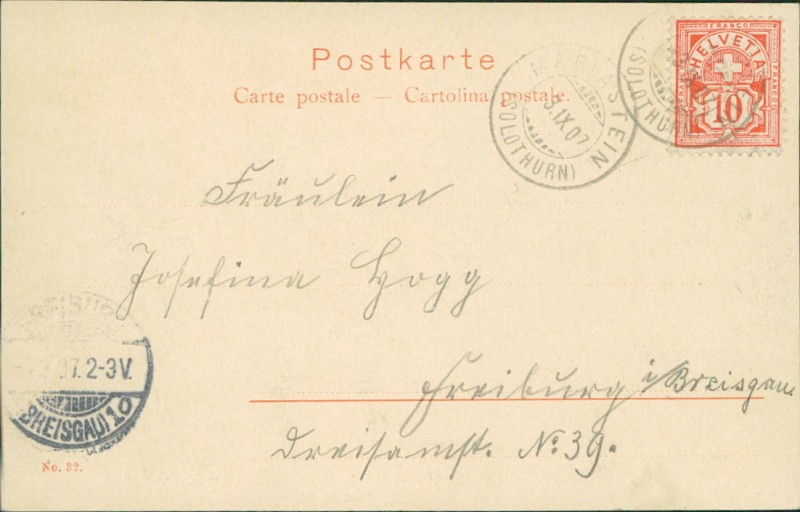 Postkarte
Carte postale — Cartolina postale.
MARIASTEIN
5.IX.07
(SOLOTHURN)
(SOLOTHURN)
FRANCO
HELVETIA
FRANCO
10
Fräulein
Josefina Hogg
Freiburg i/Breisgau.
Dreisamst. No: 39.
FREIBURG
9.07. 2-3V.
(BREISGAU) 10
No. 32.